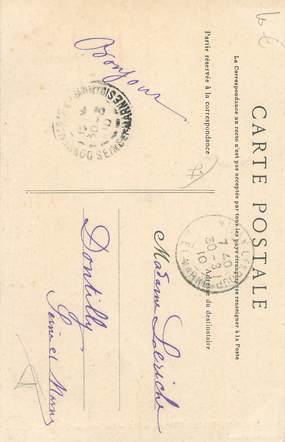 CARTE POSTALE
La Correspondance au recto n'est pas acceptée par tous les pays étrangers se renseigner à la Poste
Partie réservée à la correspondance
Adresse du destinataire
Bonjour
Madame Leriche
Dontilly
Seine et Marne
SEINE-ET-MARNE
30
10
7
30
10